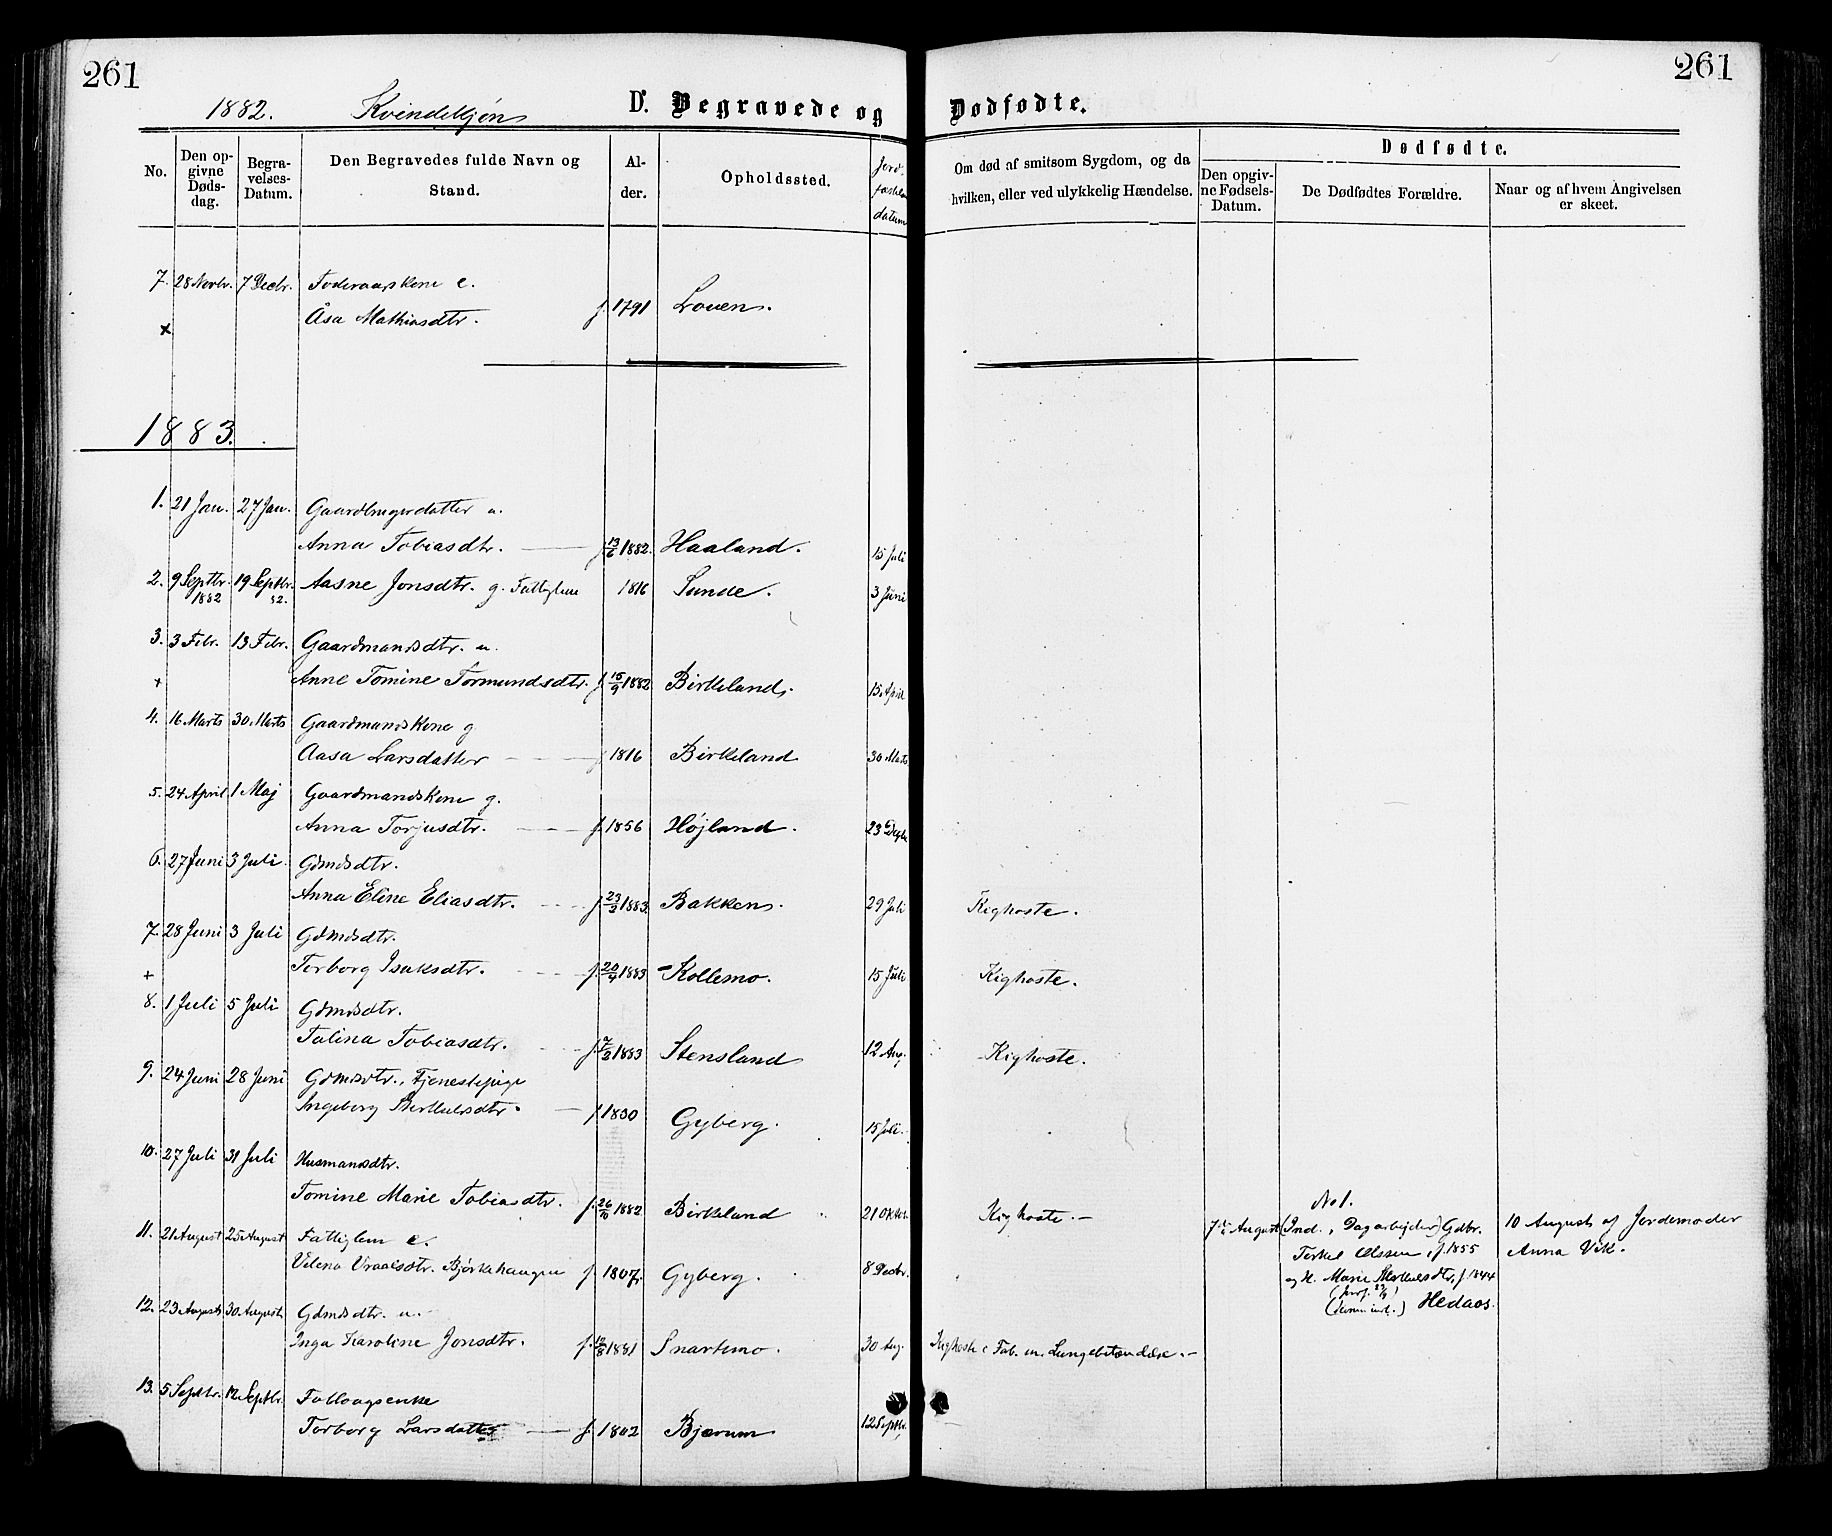 261
261
1882. Kvindekjøn D. Begravede og Dødfødte.
No.
Den opgivne Dødsdag.
Begravelses-Datum.
Den Begravedes fulde Navn og Stand.
Alder.
Opholdssted.
Jordfæstelses datum
Om død af smitsom Sygdom, og da hvilken, eller ved ulykkelig Hændelse.
Dødfødte.
Den opgivne Fødsels-Datum.
De Dødfødtes Forældre.
Naar og af hvem Angivelsen er skeet.
7. 28 Novbr. 7 Decbr. Foderaadskone e.
+ Åsa Mathiasdtr. f. 1791 Louen.
1883.
1. 21 Jan. 27 Jan. Gaardbrugerdatter u.
Anna Tobiasdtr. f. 13/6 1882. Haaland. 15 Juli
2. 9 Septbr. 1882 19 Septbr. 82. Aasne Jonsdtr. g. Fattiglem 1816 Sunde. 3 Juni
3. 3 Febr. 13 Febr. Gaardmandsdtr. u.
+ Anne Tomine Tormundsdtr. f. 15/9 1882 Birkeland. 15 April
4. 16 Marts 30 Marts Gaardmandskone g
Aasa Larsdatter f 1816 Birkeland 30 Marts
5. 24 April 1 Maj Gaardmandskone g.
Anna Torjusdtr. f. 1856 Højland. 23
6. 27 Juni 3 Juli. Gdmdsdtr.
Anna Eline Eliasdtr. f. 23/3 1883. Bakken. 29 Juli Kighoste.
7. 28 Juni 3 Juli Gdmdsdtr.
+ Torborg Isaksdtr. f. 20/4 1883 Kollemo. 15 Juli Kighoste.
8. 1 Juli 5 Juli Gdmdsdtr.
Talina Tobiasdtr. f. 7/3 1883 Stensland 12 Aug. Kighoste.
9. 24 Juni 28 Juni Gdmdsdtr., Tjenestepige
Ingeborg Berthelsdtr. f. 1830 Gyberg. 15 Juli.
10. 27 Juli 31 Juli Husmandsdtr.
Tomine Marie Tobiasdtr. f. 26/10 1882 Birkland 21 Oktbr. Kighoste.
11. 21 August 25 August Fattiglem e.
Velena Vraalsdtr. Bjørkehaugen f. 1807. Gyberg. 8 Decbr.
No 1.
7de August (Ind., Dagarbejder) Gdbr. 10 August af Jordemoder
Terkel Olssen, f. 1855 Anna Vik.
og H. Marie f. 1844
Hedaas.
12. 23 August 30 August Gdmdsdtr. u.
Inga Karoline Jonsdtr. f. 12/8 1881 Snartemo. 30 Aug. Kighoste i Forb. m. Lungebetændelse.
13. 5 Septbr. 12 Septbr. Fatlaagsenke
Torborg Larsdatter f. 1802 Bjærum 12 Septbr.